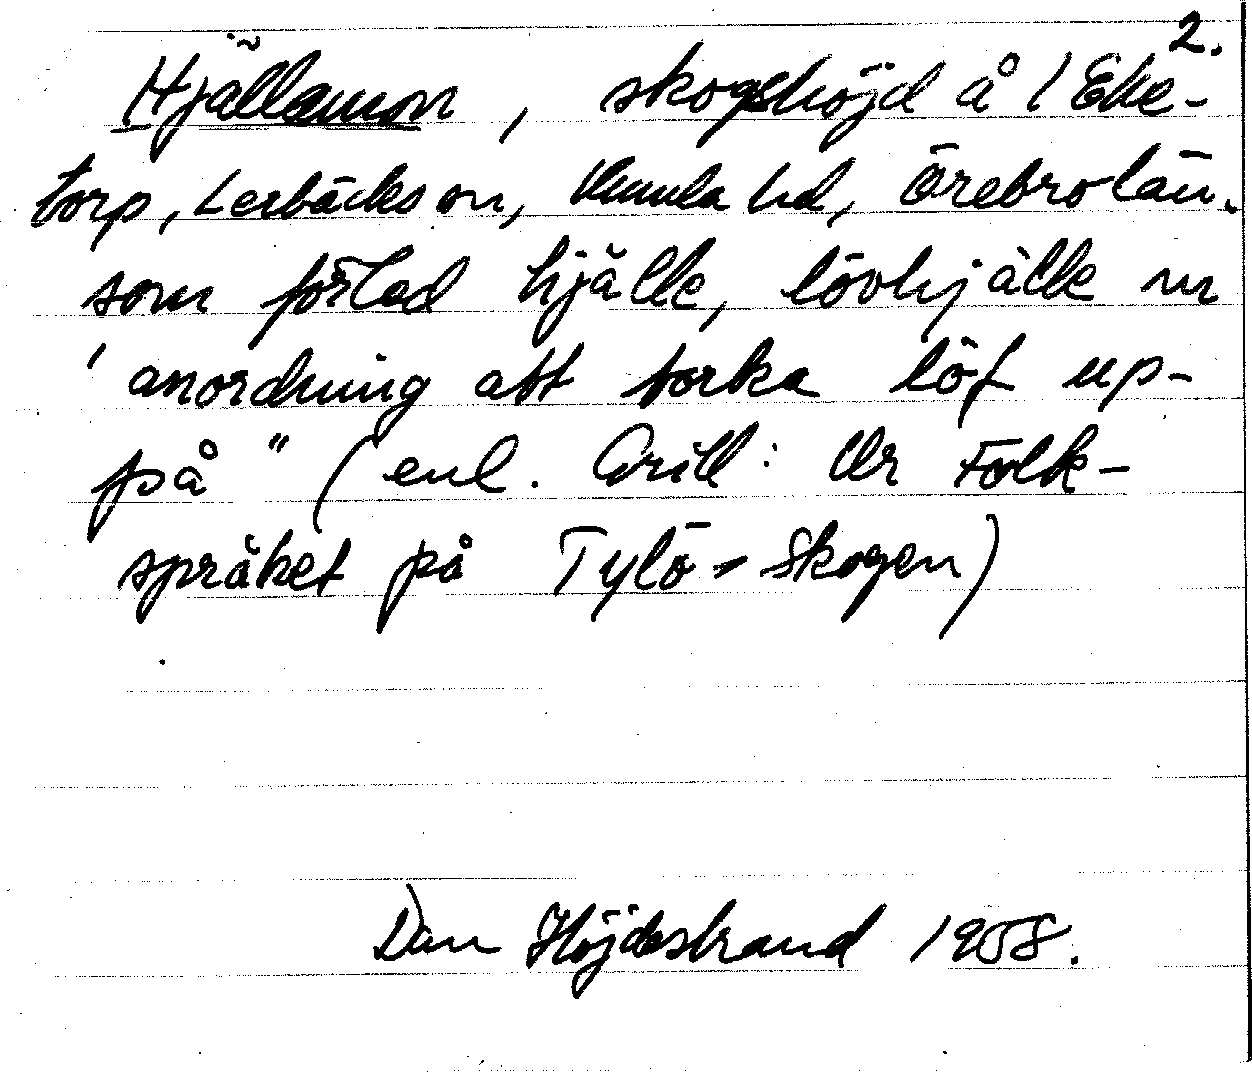 2.
Hjällamon, skogshöjd å / Eke-
torp, Lerbäcks sn, Kumla hd, Örebro län.
som förled hjälle, lövhjälle m
' anordning att torka löf up-
på" (enl. Grill: Ur Folk-
språket på Tylö-Skogen)
Dan Höjdestrand 1958.